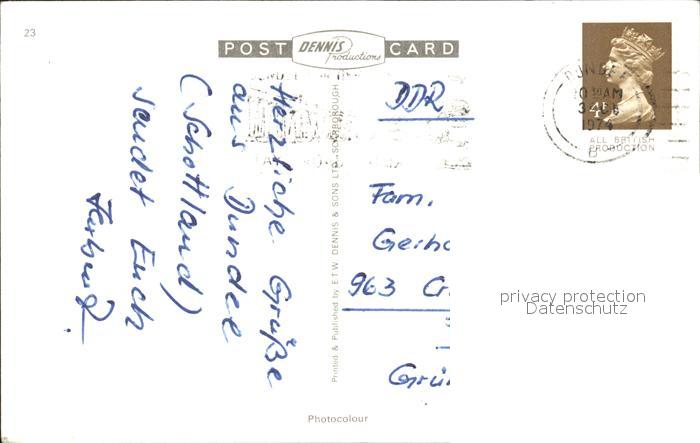 23
POST DENNIS Productions CARD
DUNDEE
10 30 AM
1974
B
4P
ALL BRITISH
PRODUCTION
Herzliche Grüße
aus Dundee
(Schottland)
sendet Euch
Printed & Published by E.T.W. DENNIS & SONS LTD., SCARBOROUGH
DDR
Fam.
Gerh
963 Cr
Grü
privacy protection
Datenschutz
Photocolour